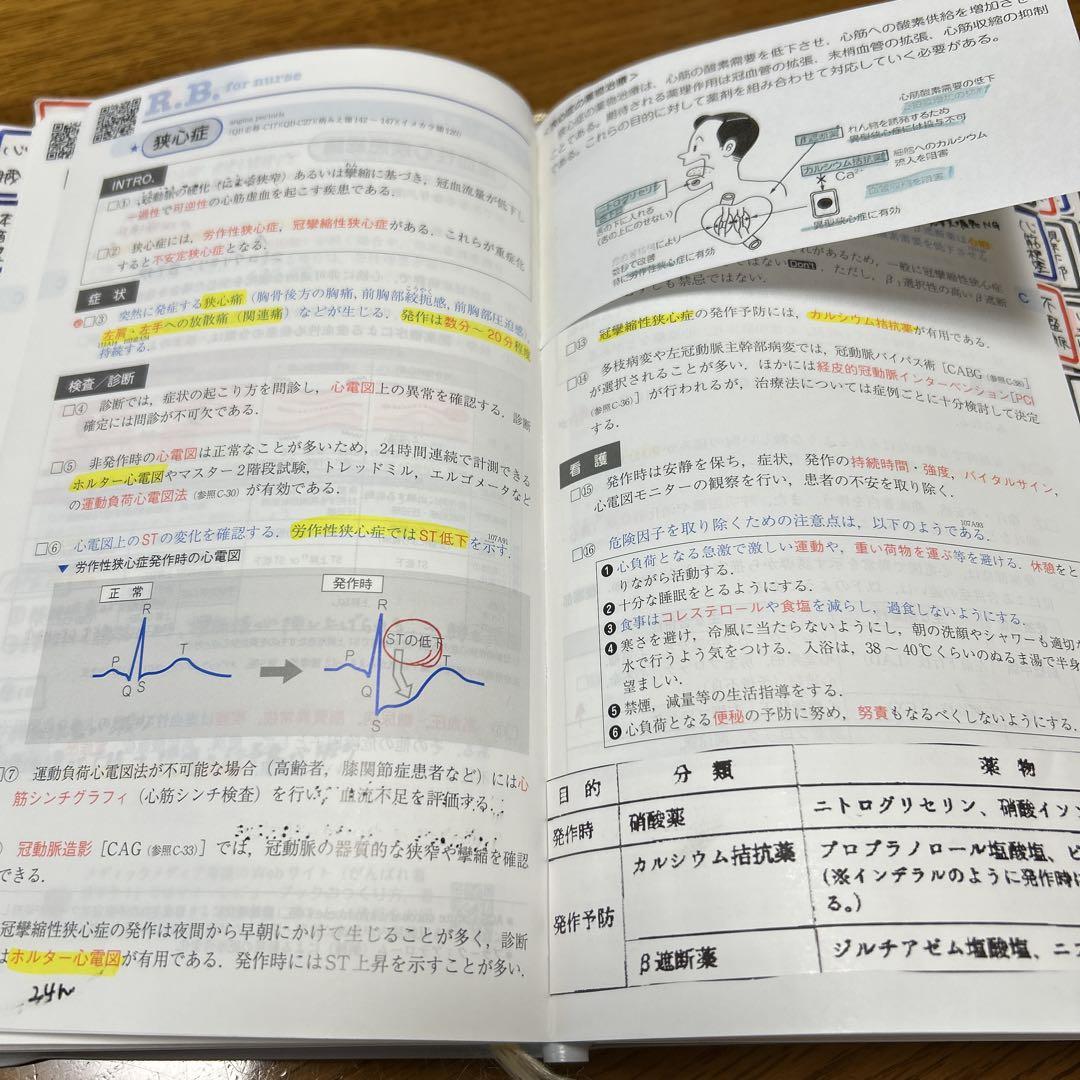 R.B. for nurse
狭心症
angina pectoris
INTRO.
□① 冠動脈の硬化（による狭窄）あるいは攣縮に基づき，冠血流量が低下し
一過性で可逆性の心筋虚血を起こす疾患である．
□② 狭心症には，労作性狭心症，冠攣縮性狭心症がある．これらが重症化
すると不安定狭心症となる．
症 状
□③ 突然に発症する狭心痛（胸骨後方の胸痛，前胸部絞扼感，前胸部圧迫感，
左肩・左手への放散痛（関連痛）などが生じる．発作は数分～20分程度
持続する．
検査／診断
□④ 診断では，症状の起こり方を問診し，心電図上の異常を確認する．診断
確定には問診が不可欠である．
□⑤ 非発作時の心電図は正常なことが多いため，24時間連続で計測できる
ホルター心電図やマスター2階段試験，トレッドミル，エルゴメータなど
の運動負荷心電図法（参照C-30）が有効である．
107A91
□⑥ 心電図上のSTの変化を確認する．労作性狭心症ではST低下を示す．
▼ 労作性狭心症発作時の心電図
正 常
発作時
R
P
Q
S
T
R
STの低下
P
Q
S
T
□⑦ 運動負荷心電図法が不可能な場合（高齢者，膝関節症患者など）には心
筋シンチグラフィ（心筋シンチ検査）を行い，血流不足を評価する．
冠動脈造影［CAG（参照C-33）］では，冠動脈の器質的な狭窄や攣縮を確認
できる．
冠攣縮性狭心症の発作は夜間から早朝にかけて生じることが多く，診断
はホルター心電図が有用である．発作時にはST上昇を示すことが多い．
24h
狭心症の薬物治療＞
狭心症の薬物治療は、心筋の酸素需要を低下させ、心筋への酸素供給を増加させ
ことである。期待される薬理作用は冠血管の拡張、末梢血管の拡張、心筋収縮の抑制
である。これらの目的に対して薬剤を組み合わせて対応していく必要がある。
心筋酸素需要の低下
β遮断薬
れん縮を誘発するため
異型狭心症には投与不可
カルシウム拮抗薬
細胞へのカルシウム
流入を阻害
Ca²⁺
異型狭心症に有効
ニトログリセリン
舌の下に入れる
（舌の上にのせない）
特に労作性狭心症に有効
があるため，一般に冠攣縮性狭心症
ではない Don't．ただし，β₁選択性の高いβ遮断
も禁忌ではない．
□⑬ 冠攣縮性狭心症の発作予防には，カルシウム拮抗薬が有用である．
□⑭ 多枝病変や左冠動脈主幹部病変では，冠動脈バイパス術［CABG（参照C-38）］
が選択されることが多い．ほかには経皮的冠動脈インターベンション［PCI
（参照C-36）］が行われるが，治療法については症例ごとに十分検討して決定
する．
看 護
□⑮ 発作時は安静を保ち，症状，発作の持続時間・強度，バイタルサイン，
心電図モニターの観察を行い，患者の不安を取り除く．
107A93
□⑯ 危険因子を取り除くための注意点は，以下のようである．
❶ 心負荷となる急激で激しい運動や，重い荷物を運ぶ等を避ける．休憩をと
りながら活動する．
❷ 十分な睡眠をとるようにする．
❸ 食事はコレステロールや食塩を減らし，過食しないようにする．
❹ 寒さを避け，冷風に当たらないようにし，朝の洗顔やシャワーも適切な
水で行うよう気をつける．入浴は，38～40℃くらいのぬるま湯で半身
望ましい．
❺ 禁煙，減量等の生活指導をする．
❻ 心負荷となる便秘の予防に努め，努責もなるべくしないようにする．
目 的 分 類 薬 物
発作時 硝酸薬 ニトログリセリン、硝酸イソ
発作予防 カルシウム拮抗薬 プロプラノロール塩酸塩、ピ
（※インデラルのように発作時に
る。）
β遮断薬 ジルチアゼム塩酸塩、ニ